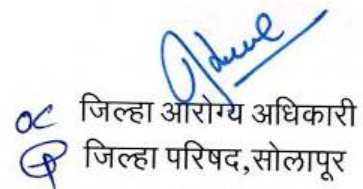 जिल्हा आरोग्य अधिकारी
जिल्हा परिषद,सोलापूर